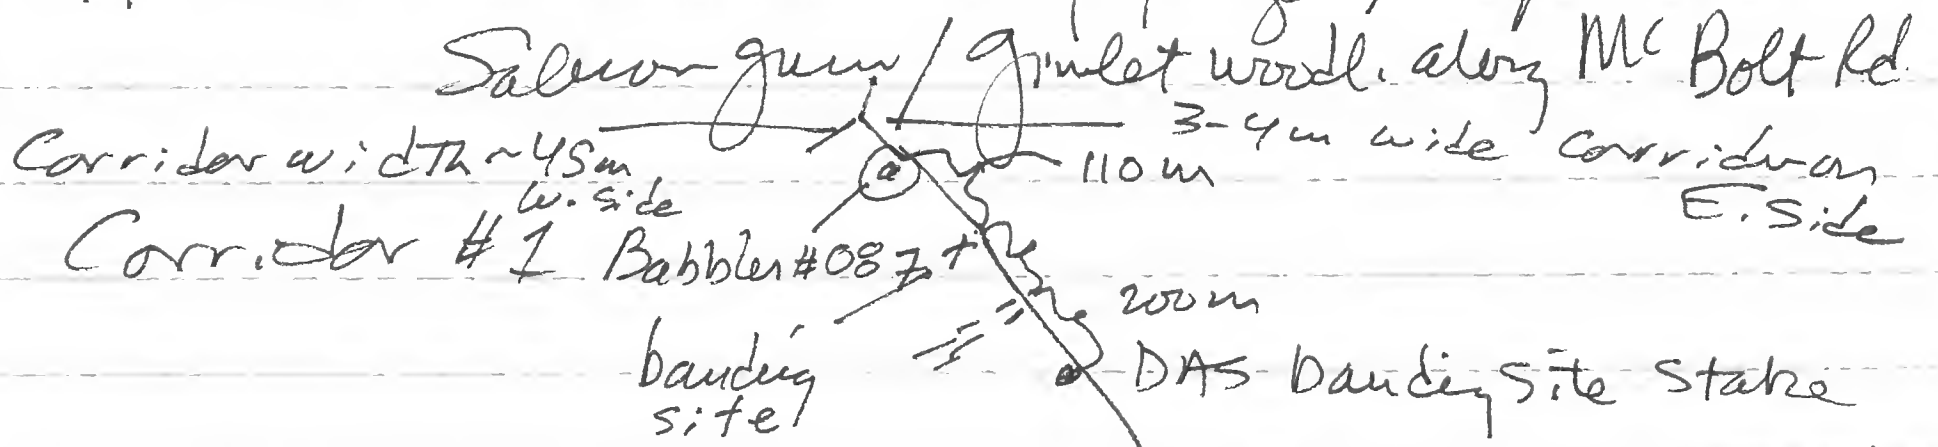 Salmon gum / gimlet woodl. along Mc Bolt Rd.
3-4m wide corridor on
E. Side
Corridor width ~45m
w. side
110m
Corridor #1
Babbler #087
200m
banding
site
DAS Banding Site Stake